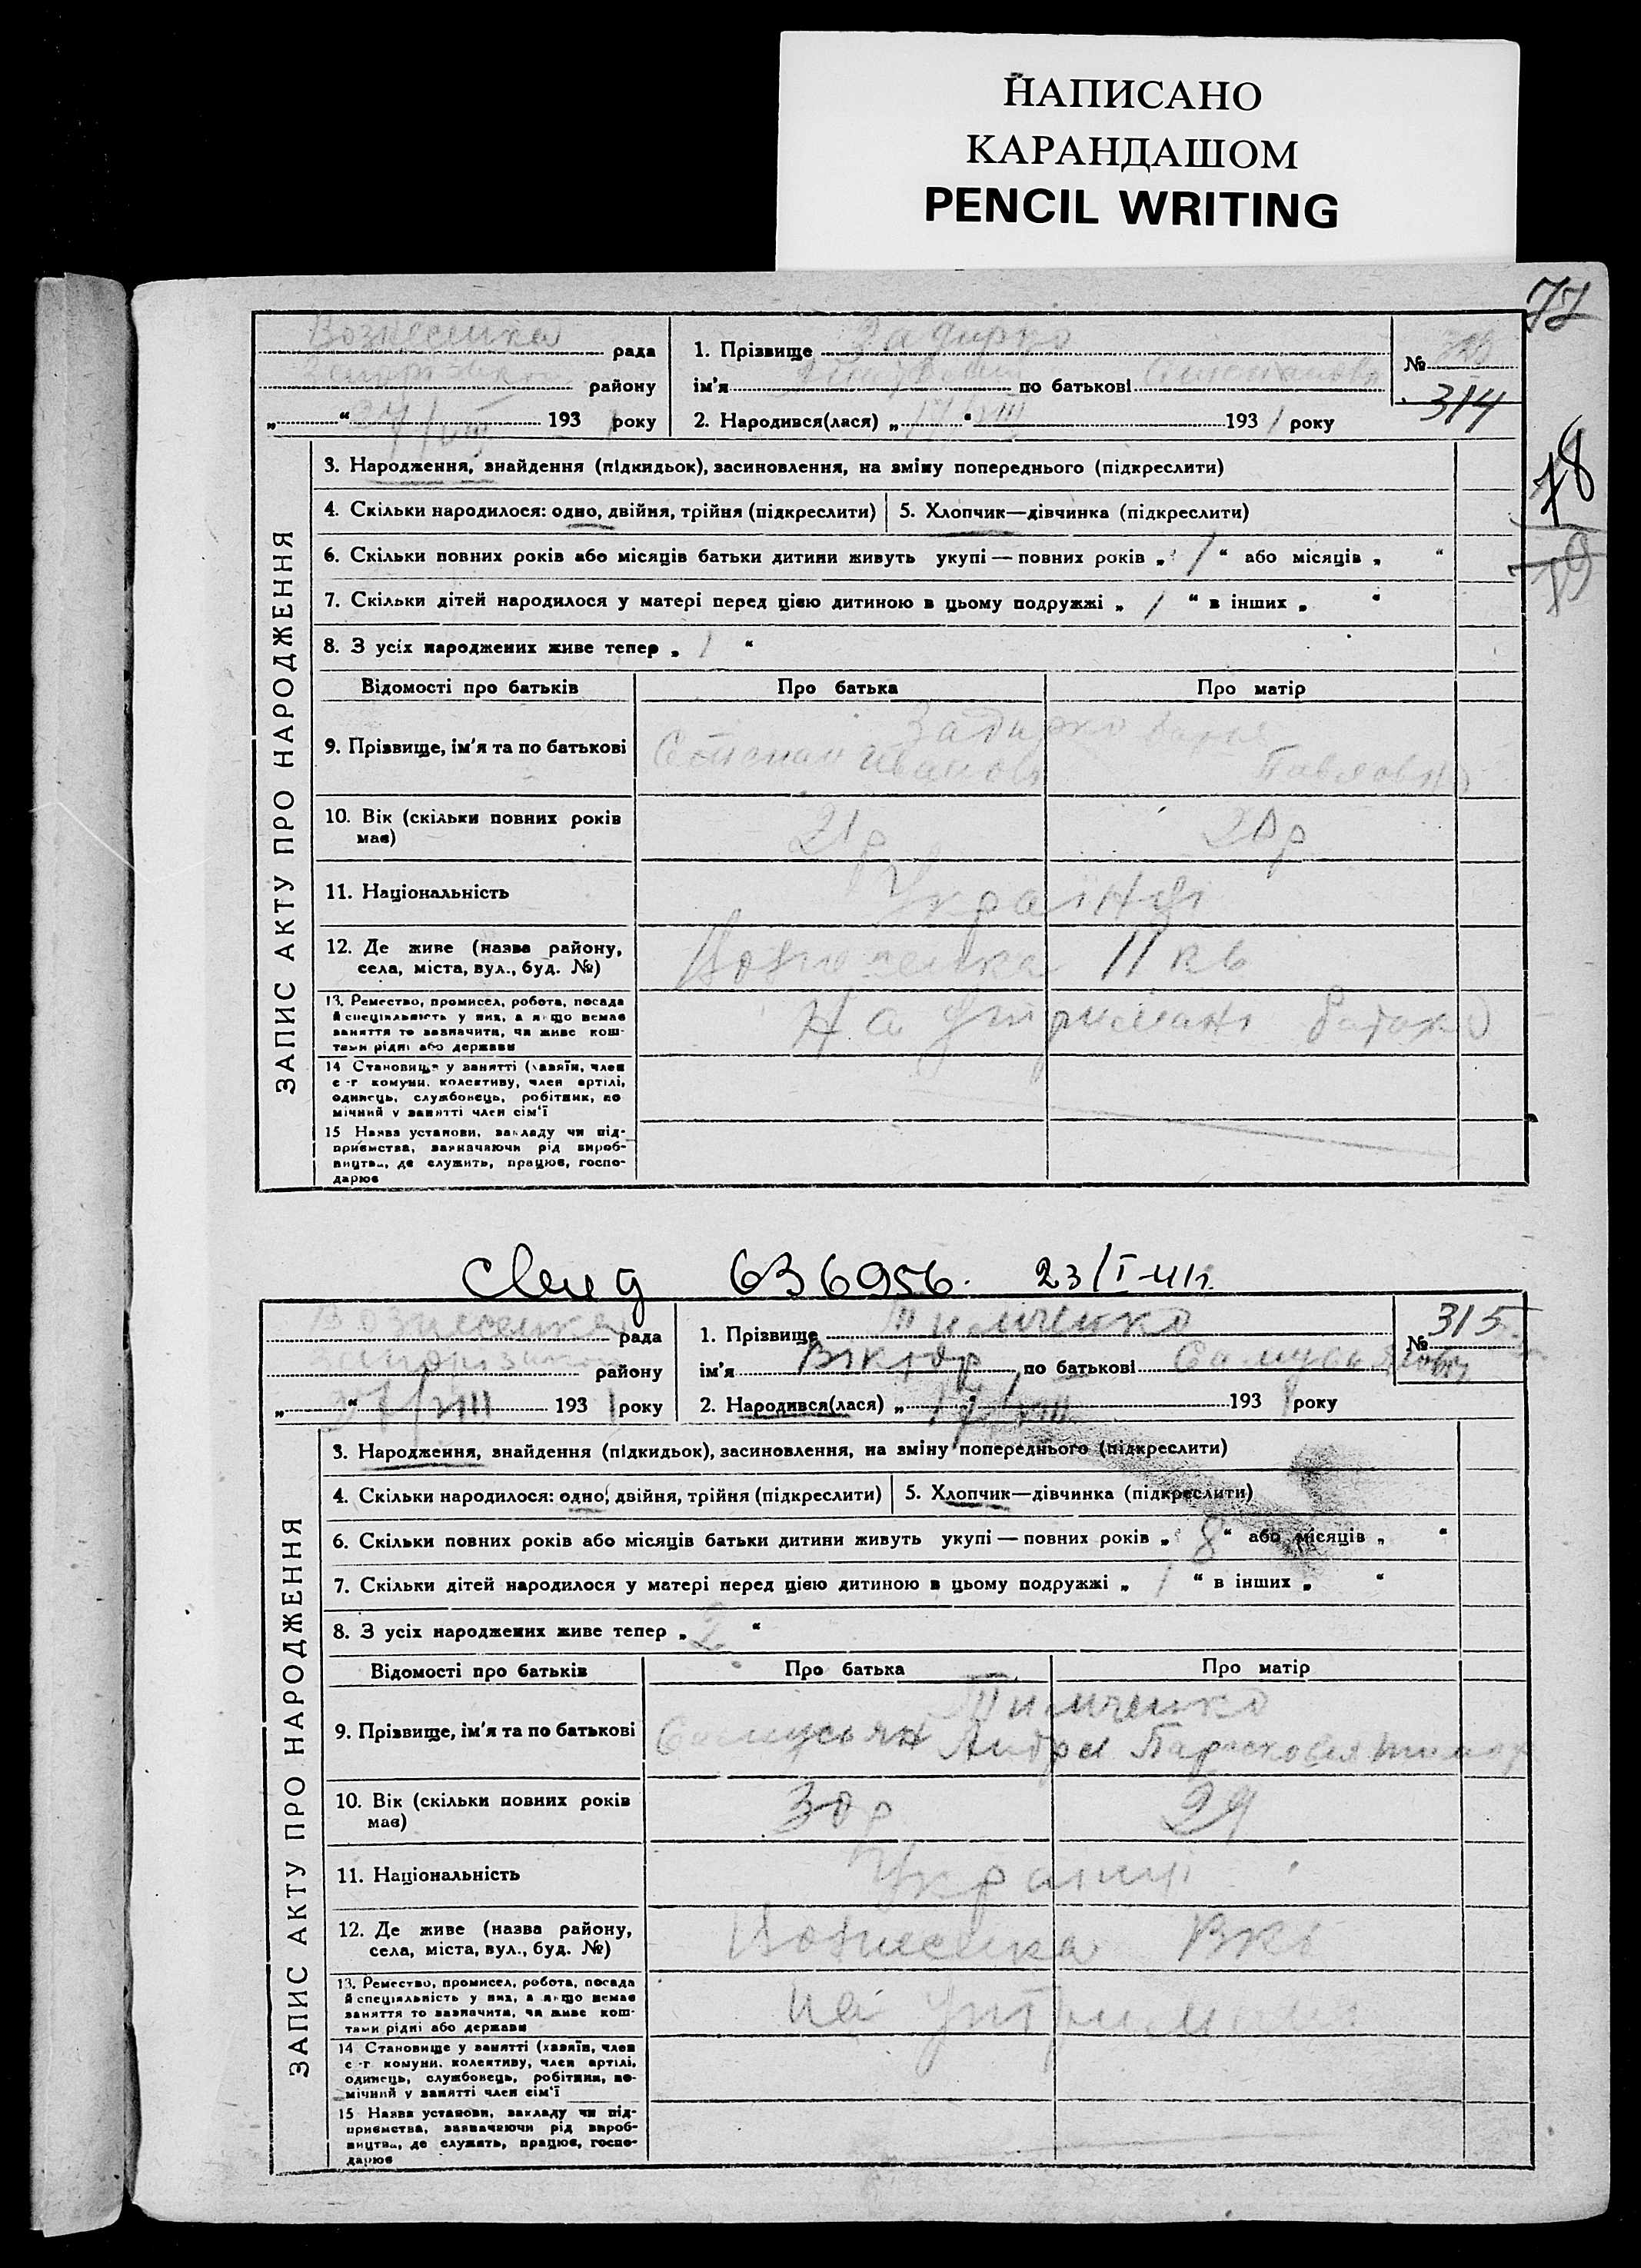 НАПИСАНО
КАРАНДАШОМ
PENCIL WRITING
77
78
79
ЗАПИС АКТУ ПРО НАРОДЖЕННЯ
Вознесенка рада
району
„ “ 27/VIII 1931 року
1. Прізвище Задирко
ім'я по батькові
2. Народився(лася) „ 17/VIII “ 1931 року
№
314
3. Народження, знайдення (підкидьок), засиновлення, на зміну попереднього (підкреслити)
4. Скільки народилося: одно, двійня, трійня (підкреслити)
5. Хлопчик—дівчинка (підкреслити)
6. Скільки повних років або місяців батьки дитини живуть укупі — повних років „ 1 “ або місяців „ “
7. Скільки дітей народилося у матері перед цією дитиною в цьому подружжі „ 1 “ в інших „ “
8. З усіх народжених живе тепер „ 1 “
Відомості про батьків Про батька Про матір
9. Прізвище, ім'я та по батькові
Задирко
Павловна
10. Вік (скільки повних років має) 21р 20р
11. Національність Українці
12. Де живе (назва району, села, міста, вул., буд. №) Вознесенка 11 кв
13. Ремество, промисел, робота, посада й спеціяльність у них, а якщо немає заняття то зазначити, чи живе коштами рідні або держави
На утримані
14 Становище у занятті (хазяїн, член с-г комуни, колективу, член артілі, одинець, службовець, робітник, помічний у занятті член сім'ї
15 Назва установи, закладу чи підприємства, зазначаючи рід виробництва, де служить, працює, господарює
636956. 23/I-41г.
ЗАПИС АКТУ ПРО НАРОДЖЕННЯ
Вознесенка рада
району
„ “ 27/VIII 1931 року
1. Прізвище Тимченко
ім'я Віктор по батькові
2. Народився(лася) „ 17/VIII 1931 року
№ 315
3. Народження, знайдення (підкидьок), засиновлення, на зміну попереднього (підкреслити)
4. Скільки народилося: одно, двійня, трійня (підкреслити)
5. Хлопчик—дівчинка (підкреслити)
6. Скільки повних років або місяців батьки дитини живуть укупі — повних років „ 8 “ або місяців „ “
7. Скільки дітей народилося у матері перед цією дитиною в цьому подружжі „ 1 “ в інших „ “
8. З усіх народжених живе тепер „ 2 “
Відомості про батьків Про батька Про матір
9. Прізвище, ім'я та по батькові
Тимченко
Андре Парасковія
10. Вік (скільки повних років має) 30р 29
11. Національність Українці
12. Де живе (назва району, села, міста, вул., буд. №) Вознесенка
13. Ремество, промисел, робота, посада й спеціяльність у них, а якщо немає заняття то зазначити, чи живе коштами рідні або держави
на
14 Становище у занятті (хазяїн, член с-г комуни, колективу, член артілі, одинець, службовець, робітник, помічний у занятті член сім'ї
15 Назва установи, закладу чи підприємства, зазначаючи рід виробництва, де служить, працює, господарює